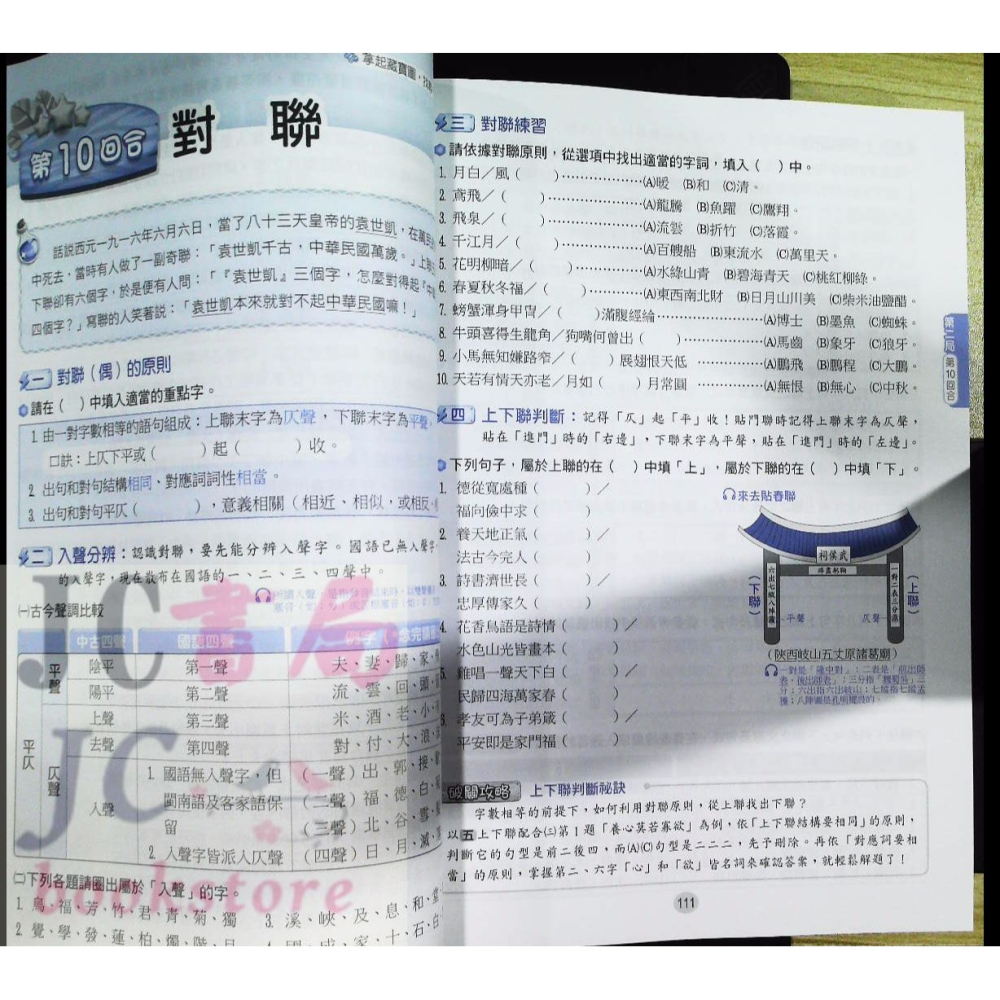 拿起藏寶圖,找
第10回合
對聯
話說西元一九一六年六月六日,當了八十三天皇帝的袁世凱,在萬
中死去,當時有人做了一副奇聯:「袁世凱千古,中華民國萬歲。」上聯
下聯卻有六個字,於是便有人問:「『袁世凱』三個字,怎麼對得起『中
四個字?」寫聯的人笑著說:「袁世凱本來就對不起中華民國嘛!」
一 對聯(偶)的原則
請在( )中填入適當的重點字。
1. 由一對字數相等的語句組成:上聯末字為仄聲,下聯末字為平聲。
口訣:上仄下平或( )起( )收。
2. 出句和對句結構相同、對應詞詞性相當。
3. 出句和對句平仄( ),意義相關(相近、相似,或相反、
二 入聲分辨:認識對聯,要先能分辨入聲字。國語已無入聲字,
的入聲字,現在散布在國語的一、二、三、四聲中。
㈠古今聲調比較
中古四聲 國語四聲 例字
平仄
平聲 陰平 第一聲 夫、妻、歸、家、
陽平 第二聲 流、雲、回、頭、
仄聲 上聲 第三聲 米、酒、老、小、
去聲 第四聲 對、付、大、浪、
入聲 1. 國語無入聲字,但 (一聲)出、郭、接、
閩南語及客家語保 (二聲)福、德、白、
留 (三聲)北、谷、雪、
2. 入聲字皆派入仄聲 (四聲)日、月、滅、
㈡下列各題請圈出屬於「入聲」的字。
1. 鳥、福、芳、竹、君、青、菊、獨 3. 溪、峽、及、息、和、堂
2. 覺、學、發、蓮、柏、燭、階、月 4. 國、成、家、十、石、白
JC書局
JC
bookstore
三 對聯練習
請依據對聯原則,從選項中找出適當的字詞,填入( )中。
1. 月白/風( )………………(A)暖 (B)和 (C)清。
2. 鳶飛/( )………………(A)龍騰 (B)魚躍 (C)鷹翔。
3. 飛泉/( )………………(A)流雲 (B)折竹 (C)落霞。
4. 千江月/( )………………(A)百艘船 (B)東流水 (C)萬里天。
5. 花明柳暗/( )………………(A)水綠山青 (B)碧海青天 (C)桃紅柳綠。
6. 春夏秋冬福/( )………………(A)東西南北財 (B)日月山川美 (C)柴米油鹽醋。
7. 螃蟹渾身甲冑/( )滿腹經綸………………(A)博士 (B)墨魚 (C)蜘蛛。
8. 牛頭喜得生龍角/狗嘴何曾出( )………………(A)馬齒 (B)象牙 (C)狼牙。
9. 小馬無知嫌路窄/( )展翅恨天低………………(A)鵬飛 (B)鵬程 (C)大鵬。
10. 天若有情天亦老/月如( )月常圓………………(A)無恨 (B)無心 (C)中秋。
四 上下聯判斷:記得「仄」起「平」收!貼門聯時記得上聯末字為仄聲,
貼在「進門」時的「右邊」,下聯末字為平聲,貼在「進門」時的「左邊」。
下列句子,屬於上聯的在( )中填「上」,屬於下聯的在( )中填「下」。
1. 德從寬處種( )/
福向儉中求( )
2. 養天地正氣( )/
法古今完人( )
3. 詩書濟世長( )/
忠厚傳家久( )
4. 花香鳥語是詩情( )/
水色山光皆畫本( )
5. 雞唱一聲天下白( )/
民歸四海萬家春( )
6. 孝友可為子弟箴( )/
平安即是家門福( )
來去貼春聯
武侯祠
(上聯)
一對二表三分鼎
仄聲
(下聯)
六出七擒八陣圖
平聲
(陝西岐山五丈原諸葛廟)
一對是「隆中對」;二表是「前出師
表、後出師表」;三分指「魏蜀吳」三
分;六出指六出岐山;七擒指七擒孟
獲;八陣圖是孔明擺設的。
破關攻略 上下聯判斷祕訣
字數相等的前提下,如何利用對聯原則,從上聯找出下聯?
以五上下聯配合㈢第1題「養心莫若寡欲」為例,依「上下聯結構要相同」的原則,
判斷它的句型是前二後四,而(A)(C)句型是二二二,先予刪除。再依「對應詞要相
當」的原則,掌握第二、六字「心」和「欲」皆名詞來確認答案,就輕鬆解題了!
111
第二局 第10回合